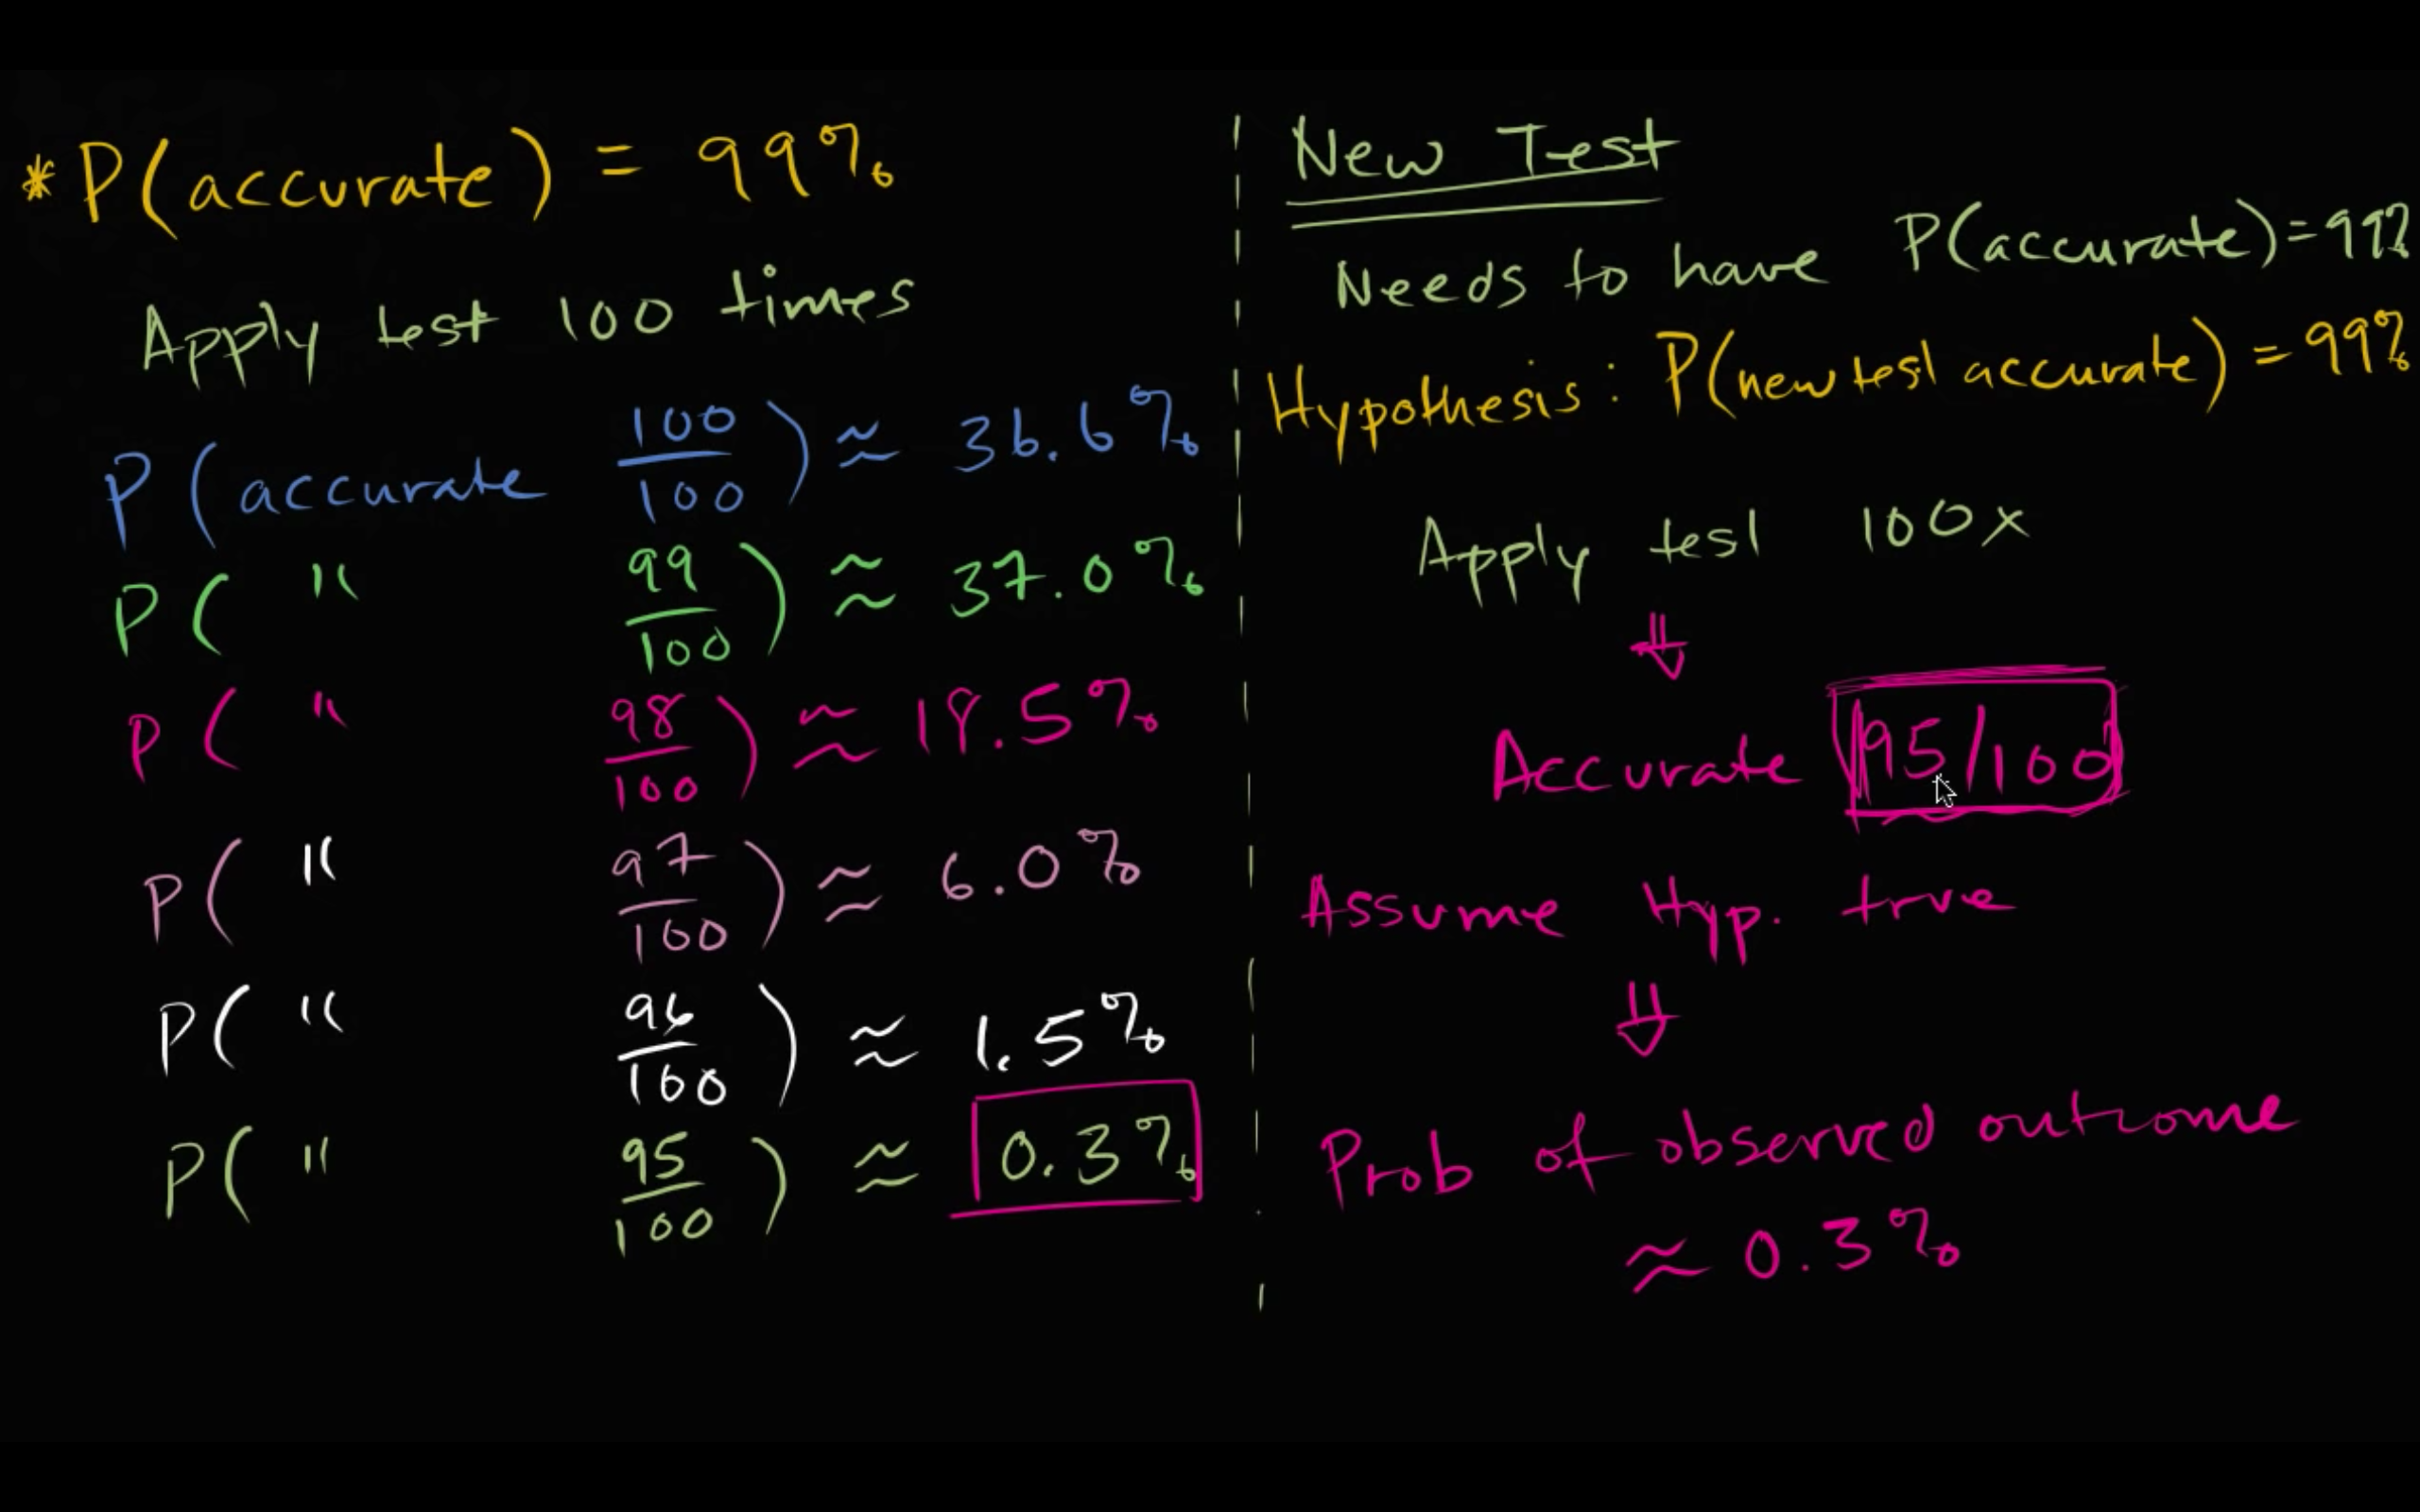 * P(accurate) = 99%
Apply test 100 times
P(accurate 100/100) ≈ 36.6%
P( " 99/100) ≈ 37.0%
P( " 98/100) ≈ 18.5%
P( " 97/100) ≈ 6.0%
P( " 96/100) ≈ 1.5%
P( " 95/100) ≈ 0.3%
New Test
Needs to have P(accurate)=99%
Hypothesis: P(new test accurate) = 99%
Apply test 100x
Accurate 95/100
Assume Hyp. true
Prob of observed outcome
≈ 0.3%